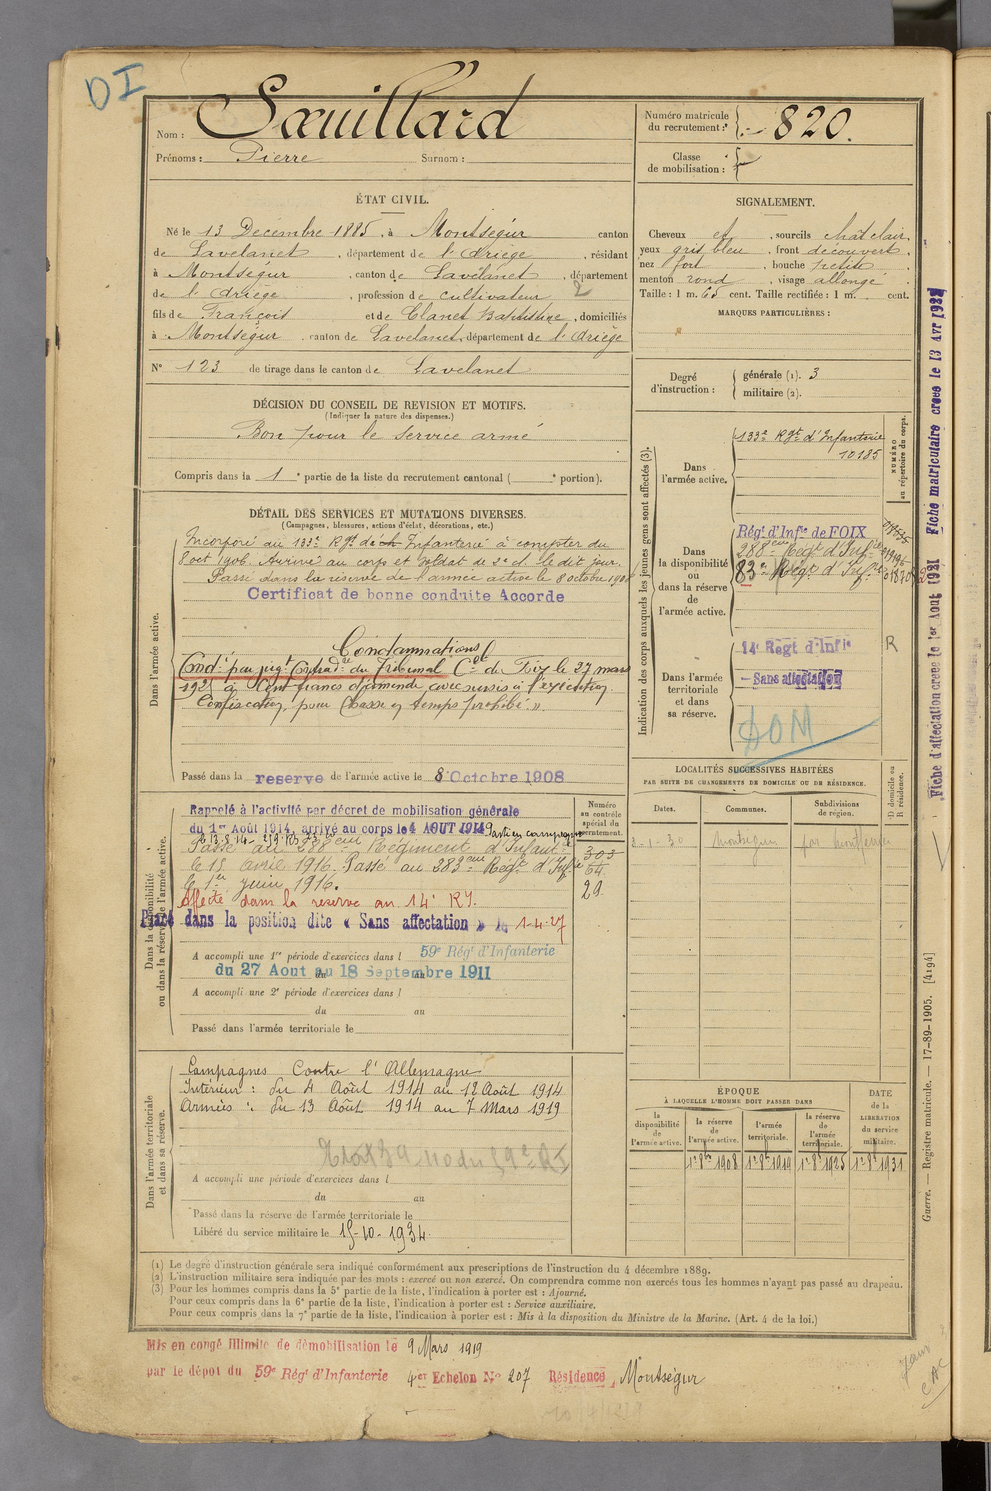 DI
Nom : Sœuillard
Prénoms : Pierre Surnom :
Numéro matricule du recrutement : 820.
Classe de mobilisation :
ÉTAT CIVIL.
Né le 13 Décembre 1885, à Montségur canton
de Lavelanet, département de l'Ariège, résidant
à Montségur, canton de Lavelanet, département
de l'Ariège, profession de cultivateur 2
fils de François et de Clanet Baptistine, domiciliés
à Montségur, canton de Lavelanet, département de l'Ariège
N° 123 de tirage dans le canton de Lavelanet
SIGNALEMENT.
Cheveux et, sourcils chât clair,
yeux gris bleu, front découvert,
nez fort, bouche petite,
menton rond, visage allongé.
Taille : 1 m. 65 cent. Taille rectifiée : 1 m. cent.
MARQUES PARTICULIÈRES :
Degré d'instruction : générale (1). 3
militaire (2).
DÉCISION DU CONSEIL DE REVISION ET MOTIFS.
(Indiquer la nature des dispenses.)
Bon pour le service armé
Compris dans la 1e partie de la liste du recrutement cantonal ( e portion).
DÉTAIL DES SERVICES ET MUTATIONS DIVERSES.
(Campagnes, blessures, actions d'éclat, décorations, etc.)
Dans l'armée active.
Incorporé au 133e Rgt d'Infanterie à compter du
8 oct 1906. Arrivé au corps et soldat de 2e cl. le dit jour.
Passé dans la réserve de l'armée active le 8 octobre 1908
Certificat de bonne conduite Accordé
Condamnations
Condé par jugt Contradre du Tribunal Cel de Foix le 27 mars
192 à Cent francs d'amende avec sursis à l'exécution
Confiscation, pour Chasse en temps prohibé ».
Passé dans la reserve de l'armée active le 8 Octobre 1908
Indication des corps auxquels les jeunes gens sont affectés (3).
NUMÉRO au répertoire du corps.
Dans l'armée active.
133e Rgt d'Infanterie
10185
Dans la disponibilité ou dans la réserve de l'armée active.
Régt d'Infie de FOIX
288eme Regt d'Infie
83e Régt d'Infie
Dans l'armée territoriale et dans sa réserve.
14e Regt d'Infie R
Sans affectation
DOM
Fiche d'affectation créée le 1er Aout 1921 Fiche matriculaire créée le 13 Avr
Dans la disponibilité ou dans la réserve de l'armée active.
Numéro au contrôle spécial du recrutement.
303
64
29
Rappelé à l'activité par décret de mobilisation générale
du 1er Août 1914, arrivé au corps le 4 AOUT 1914
Parti en campagne
Passé au 288eme Régiment d'Infantie
le 15 avril 1916. Passé au 283eme Regt d'Infie
le 1er juin 1916.
Affecté dans la reserve au 14e RI.
Placé dans la position dite « Sans affectation » le 1-4-27
A accompli une 1re période d'exercices dans l 59e Régt d'Infanterie
du 27 Aout au 18 Septembre 1911
A accompli une 2e période d'exercices dans l
du au
Passé dans l'armée territoriale le
LOCALITÉS SUCCESSIVES HABITÉES
PAR SUITE DE CHANGEMENTS DE DOMICILE OU DE RÉSIDENCE.
Dates. Communes. Subdivisions de région. D domicile ou R résidence.
1-30 Montségur
Dans l'armée territoriale et dans sa réserve.
Campagnes Contre l'Allemagne
Intérieur : du 4 Août 1914 au 12 Août 1914
Armées : du 13 Août 1914 au 7 Mars 1919
A accompli une période d'exercices dans l
du au
Passé dans la réserve de l'armée territoriale le
Libéré du service militaire le 15-10-1934
ÉPOQUE
À LAQUELLE L'HOMME DOIT PASSER DANS
la disponibilité de l'armée active. la réserve de l'armée active. l'armée territoriale. la réserve de l'armée territoriale.
DATE de la LIBÉRATION du service militaire.
1er 8bre 1908 1er 8bre 1919 1er 8bre 1925 1er 8bre 1931
(1) Le degré d'instruction générale sera indiqué conformément aux prescriptions de l'instruction du 4 décembre 1889.
(2) L'instruction militaire sera indiquée par les mots : exercé ou non exercé. On comprendra comme non exercés tous les hommes n'ayant pas passé au drapeau.
(3) Pour les hommes compris dans la 5e partie de la liste, l'indication à porter est : Ajourné.
Pour ceux compris dans la 6e partie de la liste, l'indication à porter est : Service auxiliaire.
Pour ceux compris dans la 7e partie de la liste, l'indication à porter est : Mis à la disposition du Ministre de la Marine. (Art. 4 de la loi.)
Guerre. — Registre matricule. — 17-89-1905. [4194]
Mis en congé illimité de démobilisation le 9 Mars 1919
par le dépôt du 59e Régt d'Infanterie 4er Echelon No 207 Résidence, Montségur